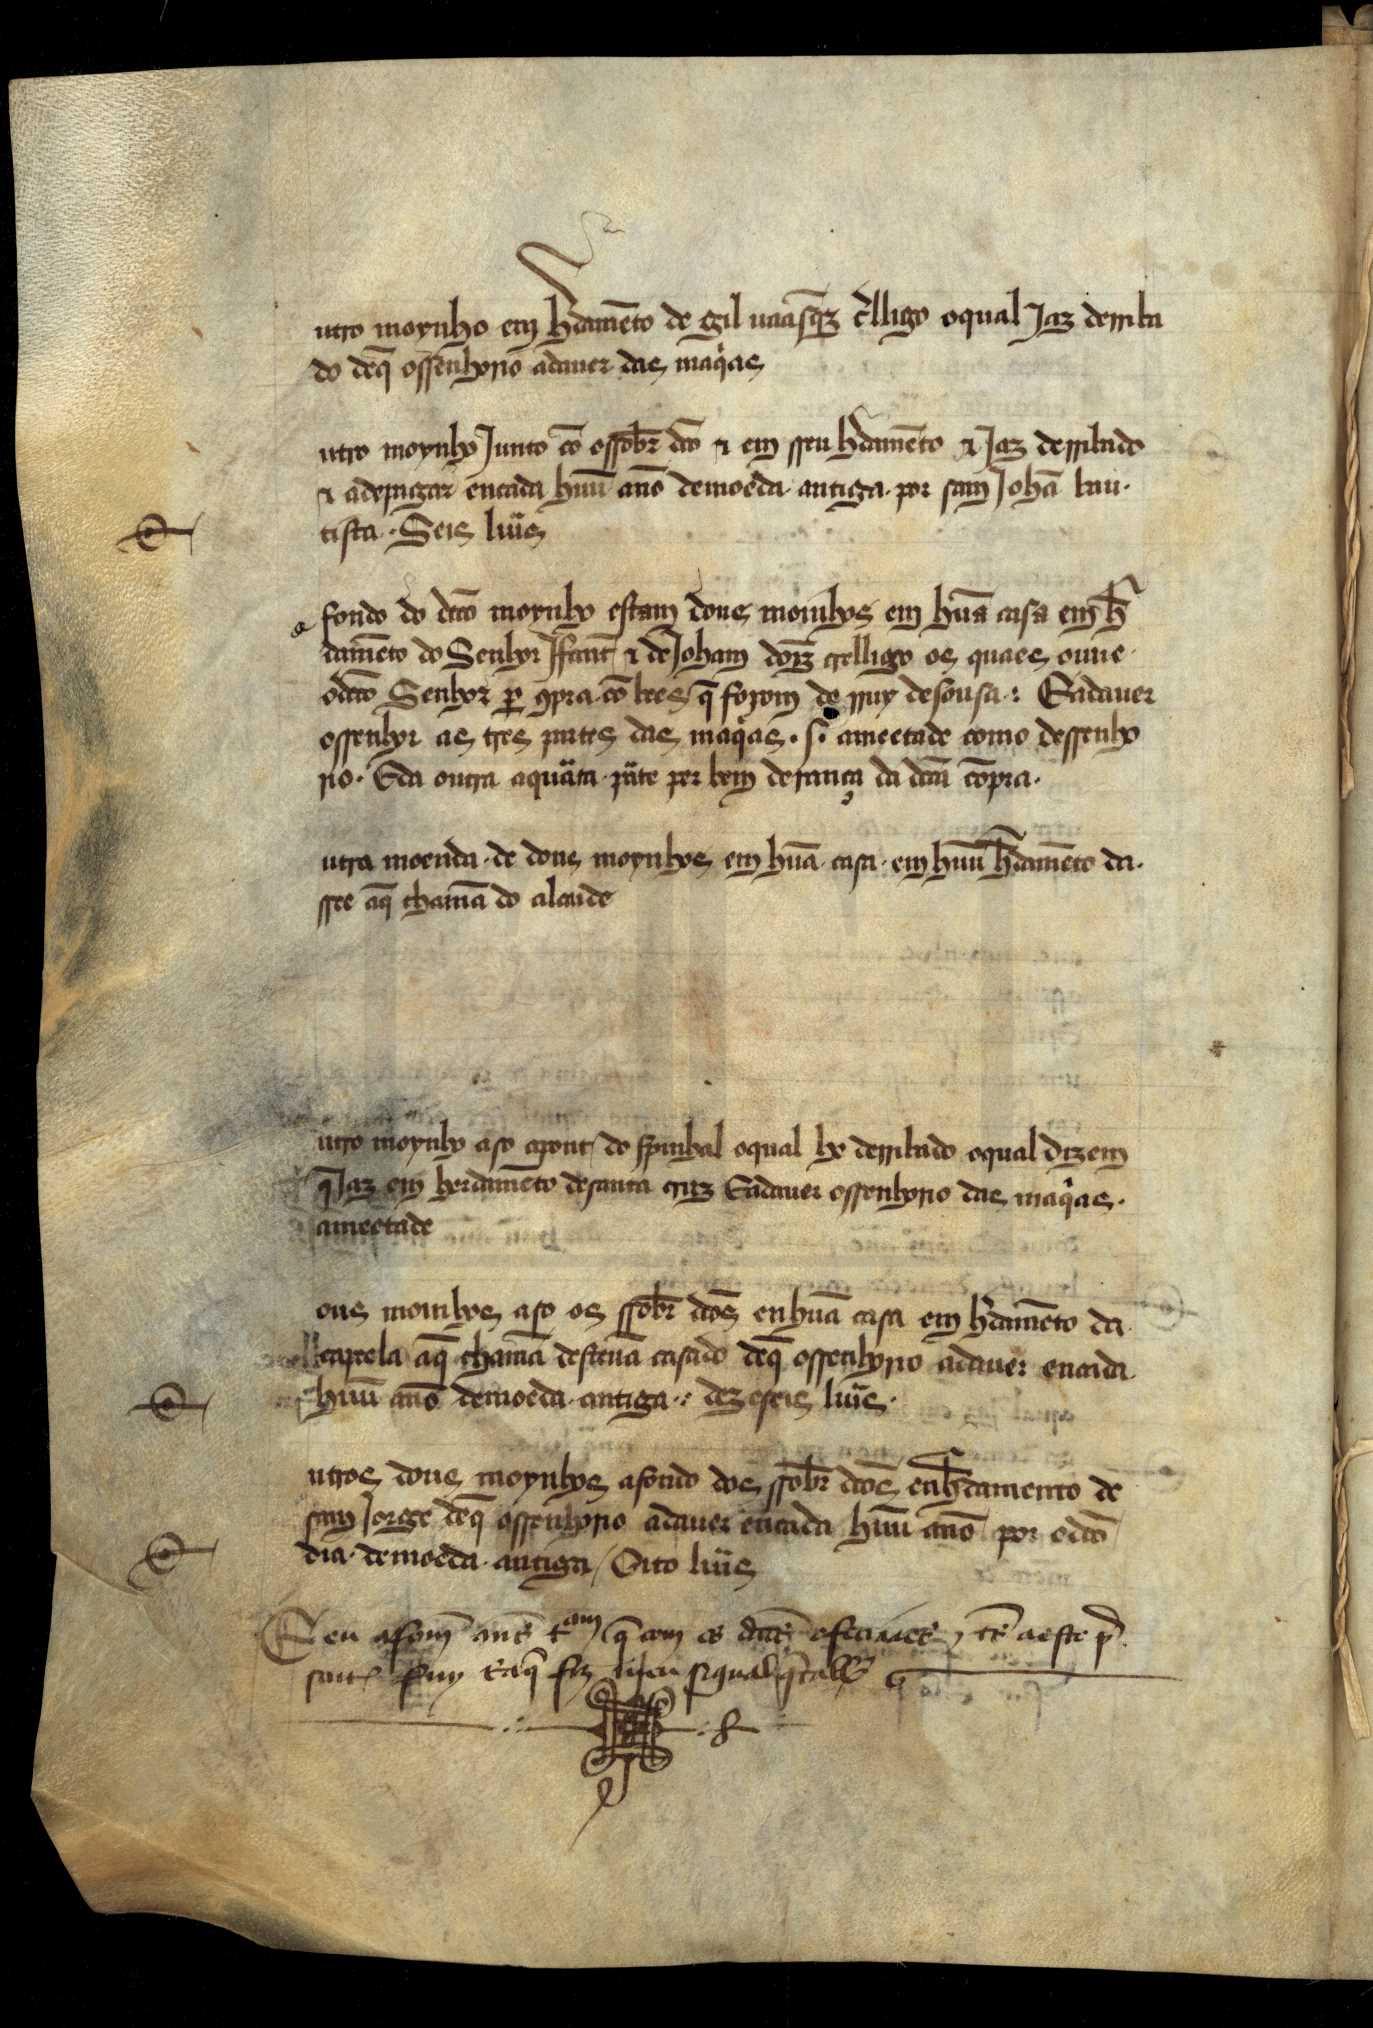 utro moynho em h̃damẽto de gil uaasq̃z cľligo oqual Jaz derriba
do deq̃ ossenhorio adauer das maq̃as
utro moynho Junto cõ ossobr̃ dc̃o & em sseu h̃damẽto & Jaz derribado
& adepagar encada huũ ano demoeda antiga por sam Johã bau
tista. Seis lius̃
fondo do dc̃to moynho estam dous moinhos em huã casa em h̃
damẽto do Senhor Jffant & de Joham dorz̃ crelligo os quaes ouue
odc̃to Senhor ꝑ ꝯpra cõ bees q̃ forom de rruy desousa : Eadauer
ossenhor as tres partes das maq̃as. s. ameetade como dessenho
rio. Eda outra aquãta pãte per bem derança da dc̃ta cõpra.
utra moenda de dous moynhos em huã casa em huũ h̃damẽto da
see aq̃ chamã do alcaide
utro moynho aso apont do spinhal oqual he derribado oqual dizem
q̃ Jaz em herdamẽto desanta cruz Eadauer ossenhorio das maq̃as.
ameetade
ous moinhos aso os ssobr̃ dc̃os enhuã casa em h̃damẽto da
capeela aq̃ chamã desteuã casado deq̃ ossenhorio adauer encada
huũ ano demoeda antiga : dez eseis lius̃.
utros dous moynhos afondo dos ssobr̃ dc̃os enh̃damento de
sam Jorge deq̃ ossenhorio adauer encada huũ ano por odc̃to
dia demoeda antiga / Oito lius̃
E eu